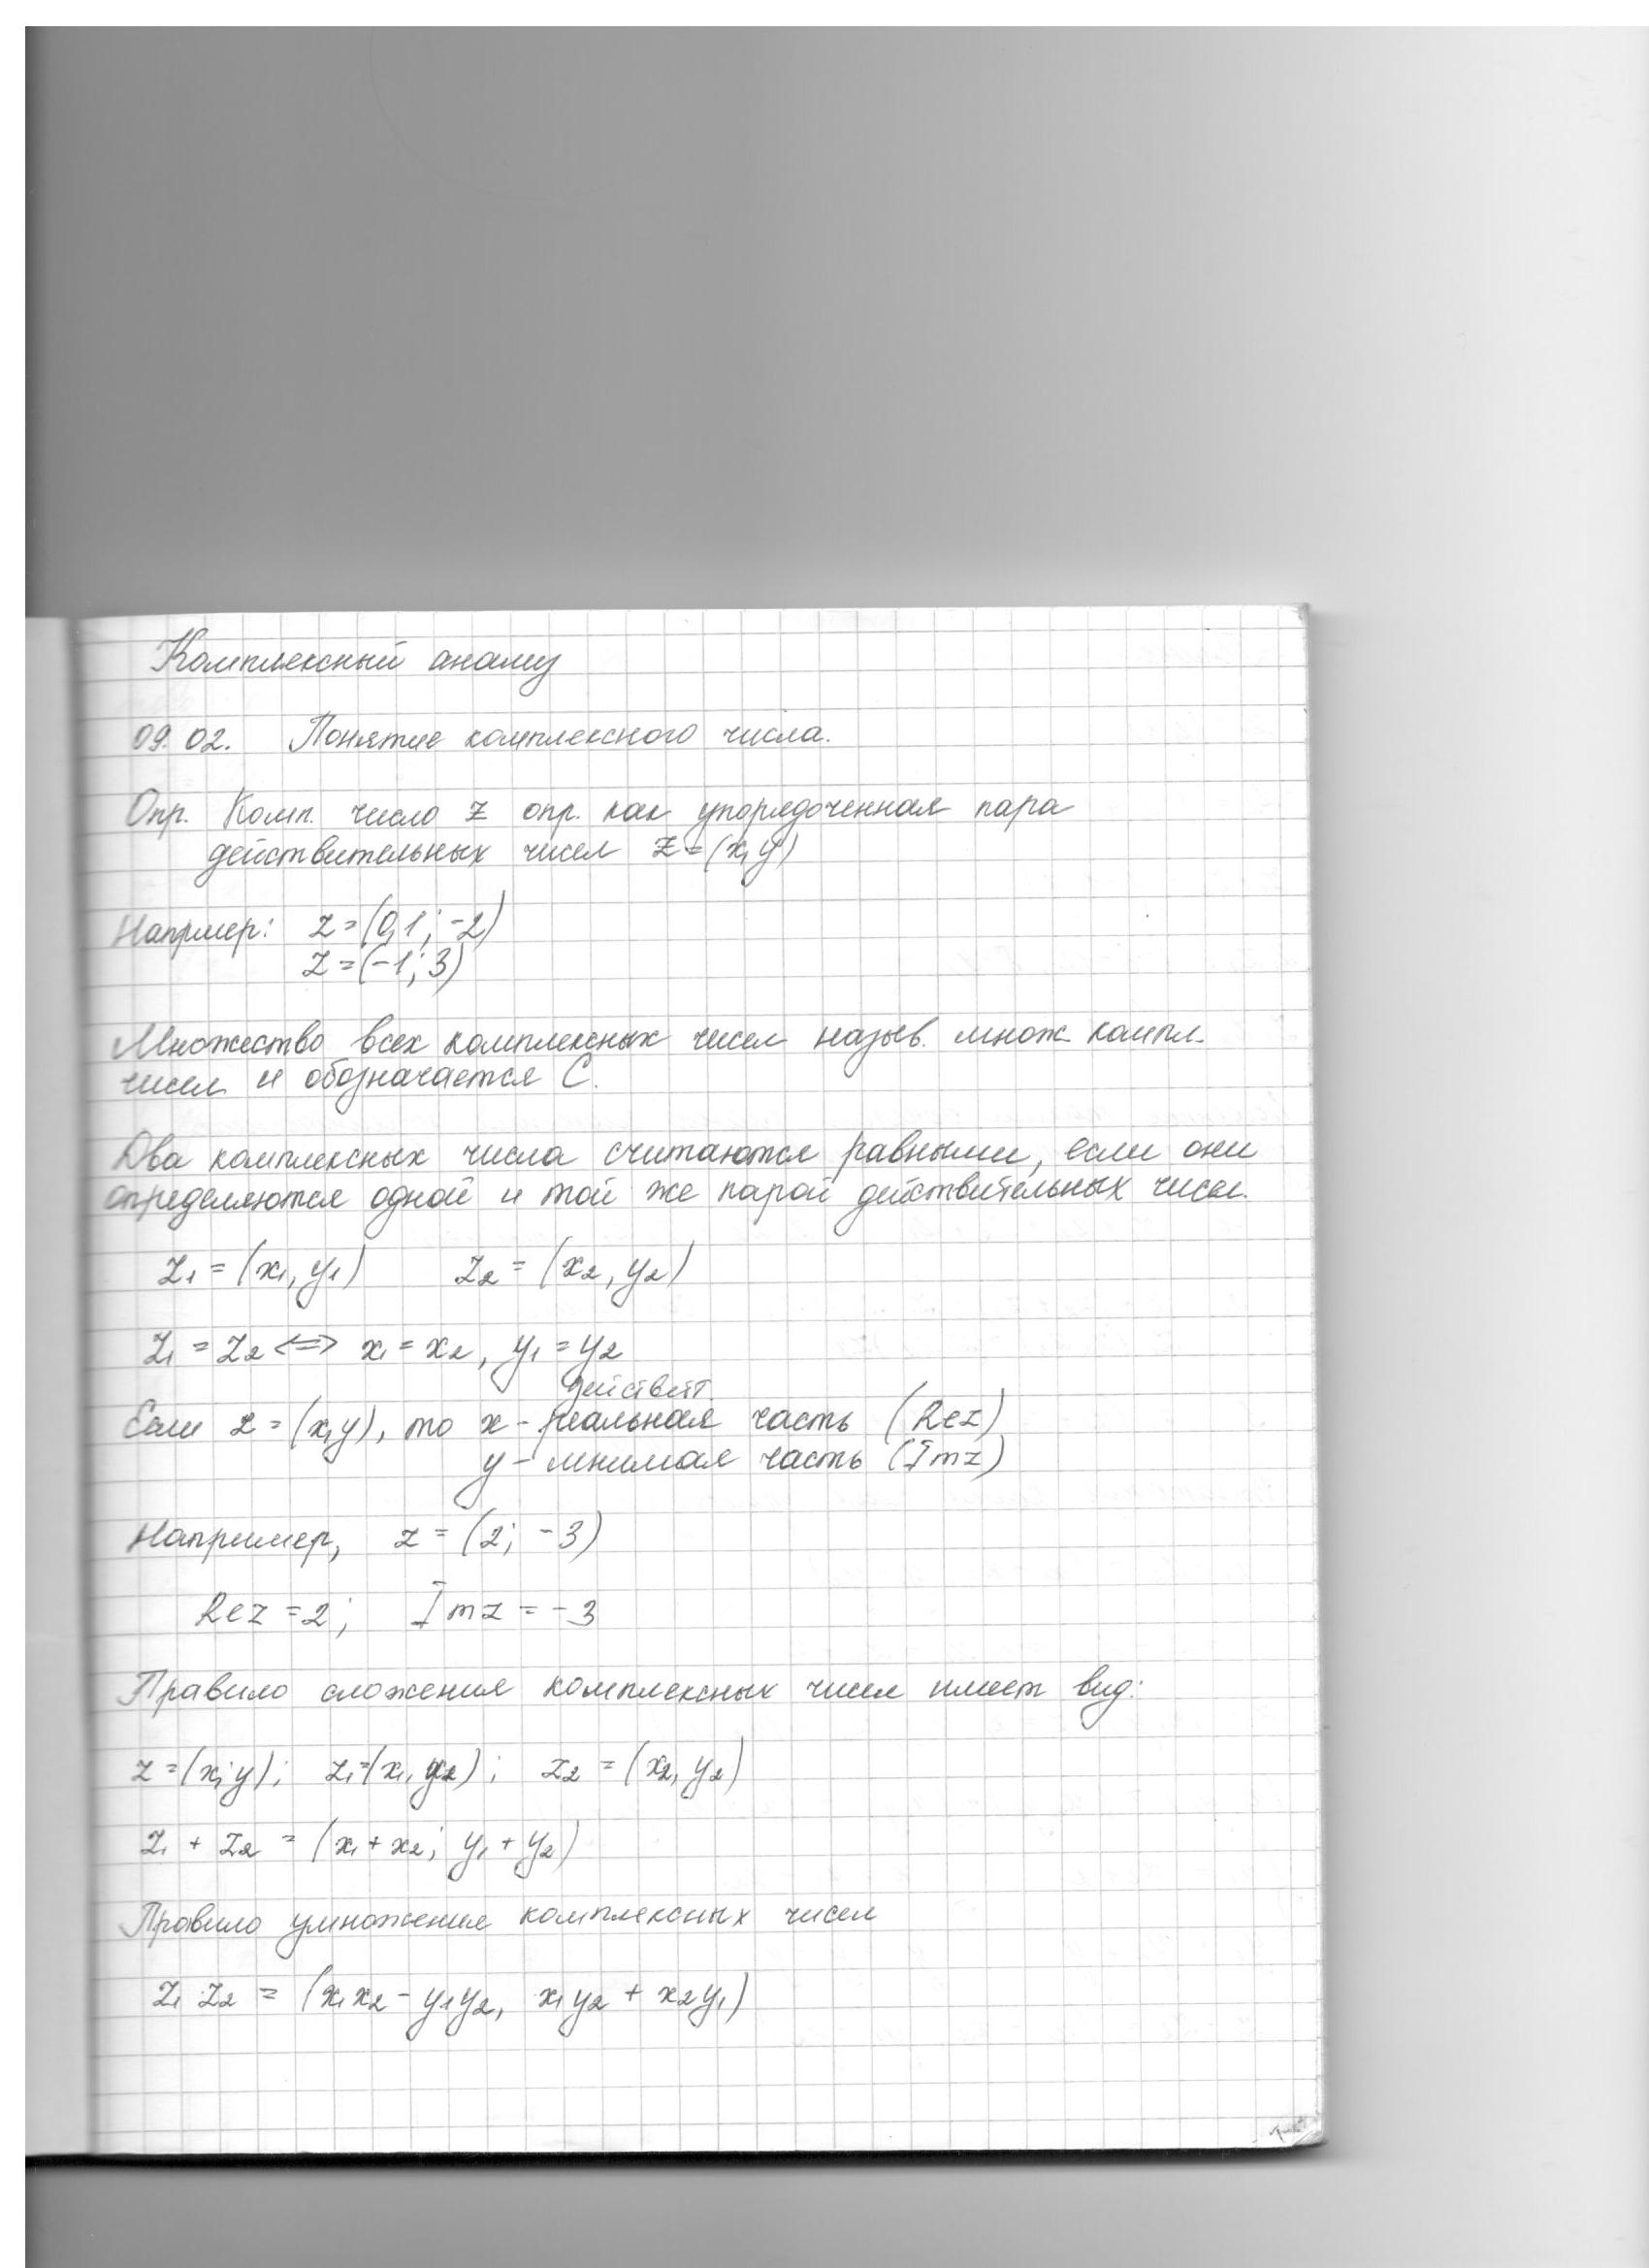 Комплексный анализ
09.02. Понятие комплексного числа.
Опр. Комп. число z опр. как упорядоченная пара
действительных чисел z=(x,y)
Например: z=(0,1; -2)
z=(-1; 3)
Множество всех комплексных чисел назыв. множ. компл.
чисел и обозначается C.
Два комплексных числа считаются равными, если они
определяются одной и той же парой действительных чисел.
z₁ = (x₁, y₁) z₂ = (x₂, y₂)
z₁ = z₂ <=> x₁ = x₂, y₁ = y₂
действит.
Если z = (x,y), то x - реальная часть (Rez)
y - мнимая часть (Imz)
Например, z = (2; -3)
Rez = 2; Imz = -3
Правило сложения комплексных чисел имеет вид:
z=(x;y); z₁=(x₁, y₂); z₂ = (x₂, y₂)
z₁ + z₂ = (x₁ + x₂; y₁ + y₂)
Правило умножения комплексных чисел
z₁ z₂ = (x₁x₂ - y₁y₂, x₁y₂ + x₂y₁)